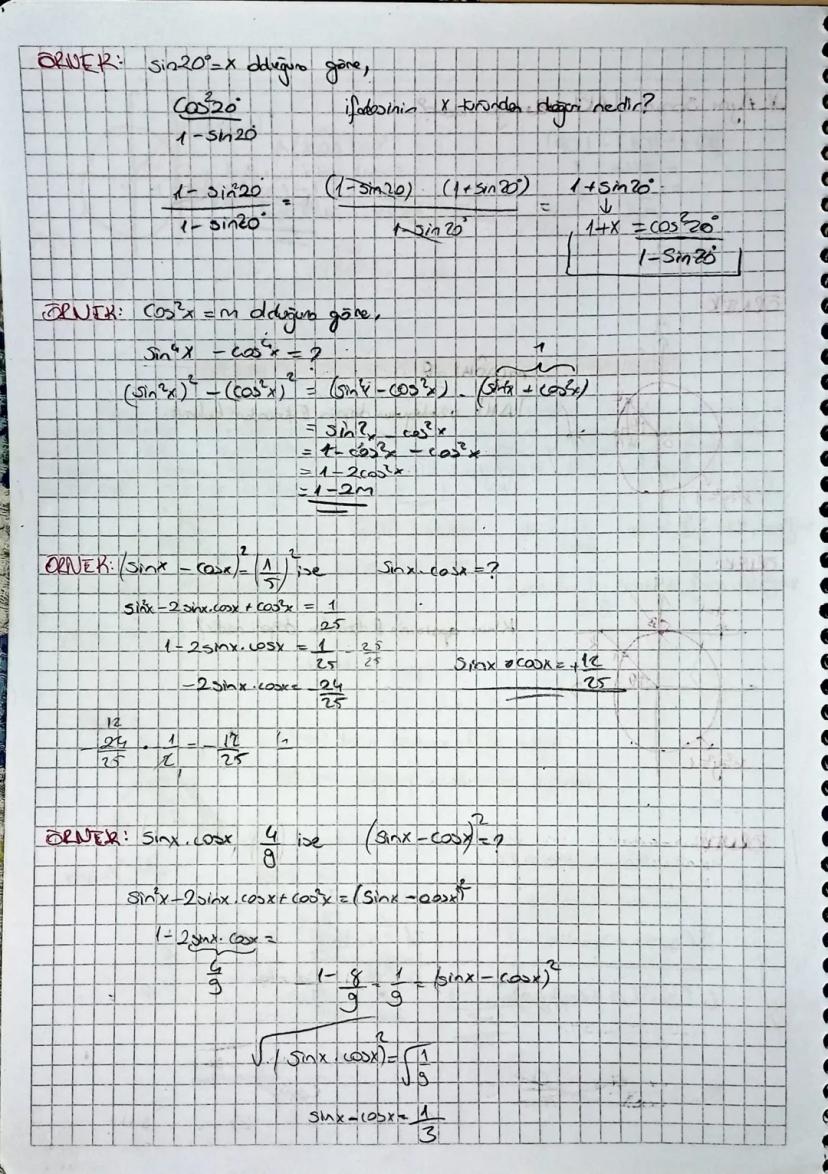 ÖRNEK: sin20°=x olduğuna göre,
cos²20° / 1-sin20 ifadesinin x türünden değeri nedir?
1-sin²20 / 1-sin20° = (1-sin20) · (1+sin20°) / 1-sin20° = 1+sin20°
↓
1+x = cos²20° / 1-sin20°
ÖRNEK: cos²x = m olduğuna göre,
sin⁴x - cos⁴x = ?
1
(sin²x)² - (cos²x)² = (sin²x - cos²x) · (sin²x + cos²x)
= sin²x - cos²x
= 1 - cos²x - cos²x
= 1-2cos²x
= 1-2m
ÖRNEK: (sinx - cosx)² = (1/5)² ise sinx·cosx = ?
sin²x-2sinx.cosx+cos²x = 1/25
1-2sinx.cosx = 1/25 - 25/25
-2sinx.cosx = -24/25
sinx · cosx = +12/25
12
-24/25 · 1/2 = -12/25
1
ÖRNEK: sinx.cosx 4/9 ise (sinx-cosx)² = ?
sin²x-2sinx.cosx+cos²x = (sinx-cosx)²
1-2sinx.cosx =
4/9
1 - 8/9 = 1/9 = (sinx-cosx)²
√(sinx · cosx)² = √1/9
sinx-cosx = 1/3